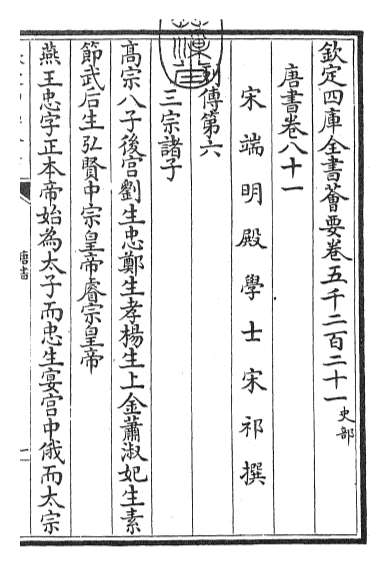 欽定四庫全書薈要卷五千二百二十一 史部
唐書卷八十一
宋端明殿學士宋祁撰
列傳第六
三宗諸子
高宗八子後宮劉生忠鄭生孝楊生上金蕭淑妃生素
節武后生弘賢中宗皇帝睿宗皇帝
燕王忠字正本帝始為太子而忠生宴宮中俄而太宗